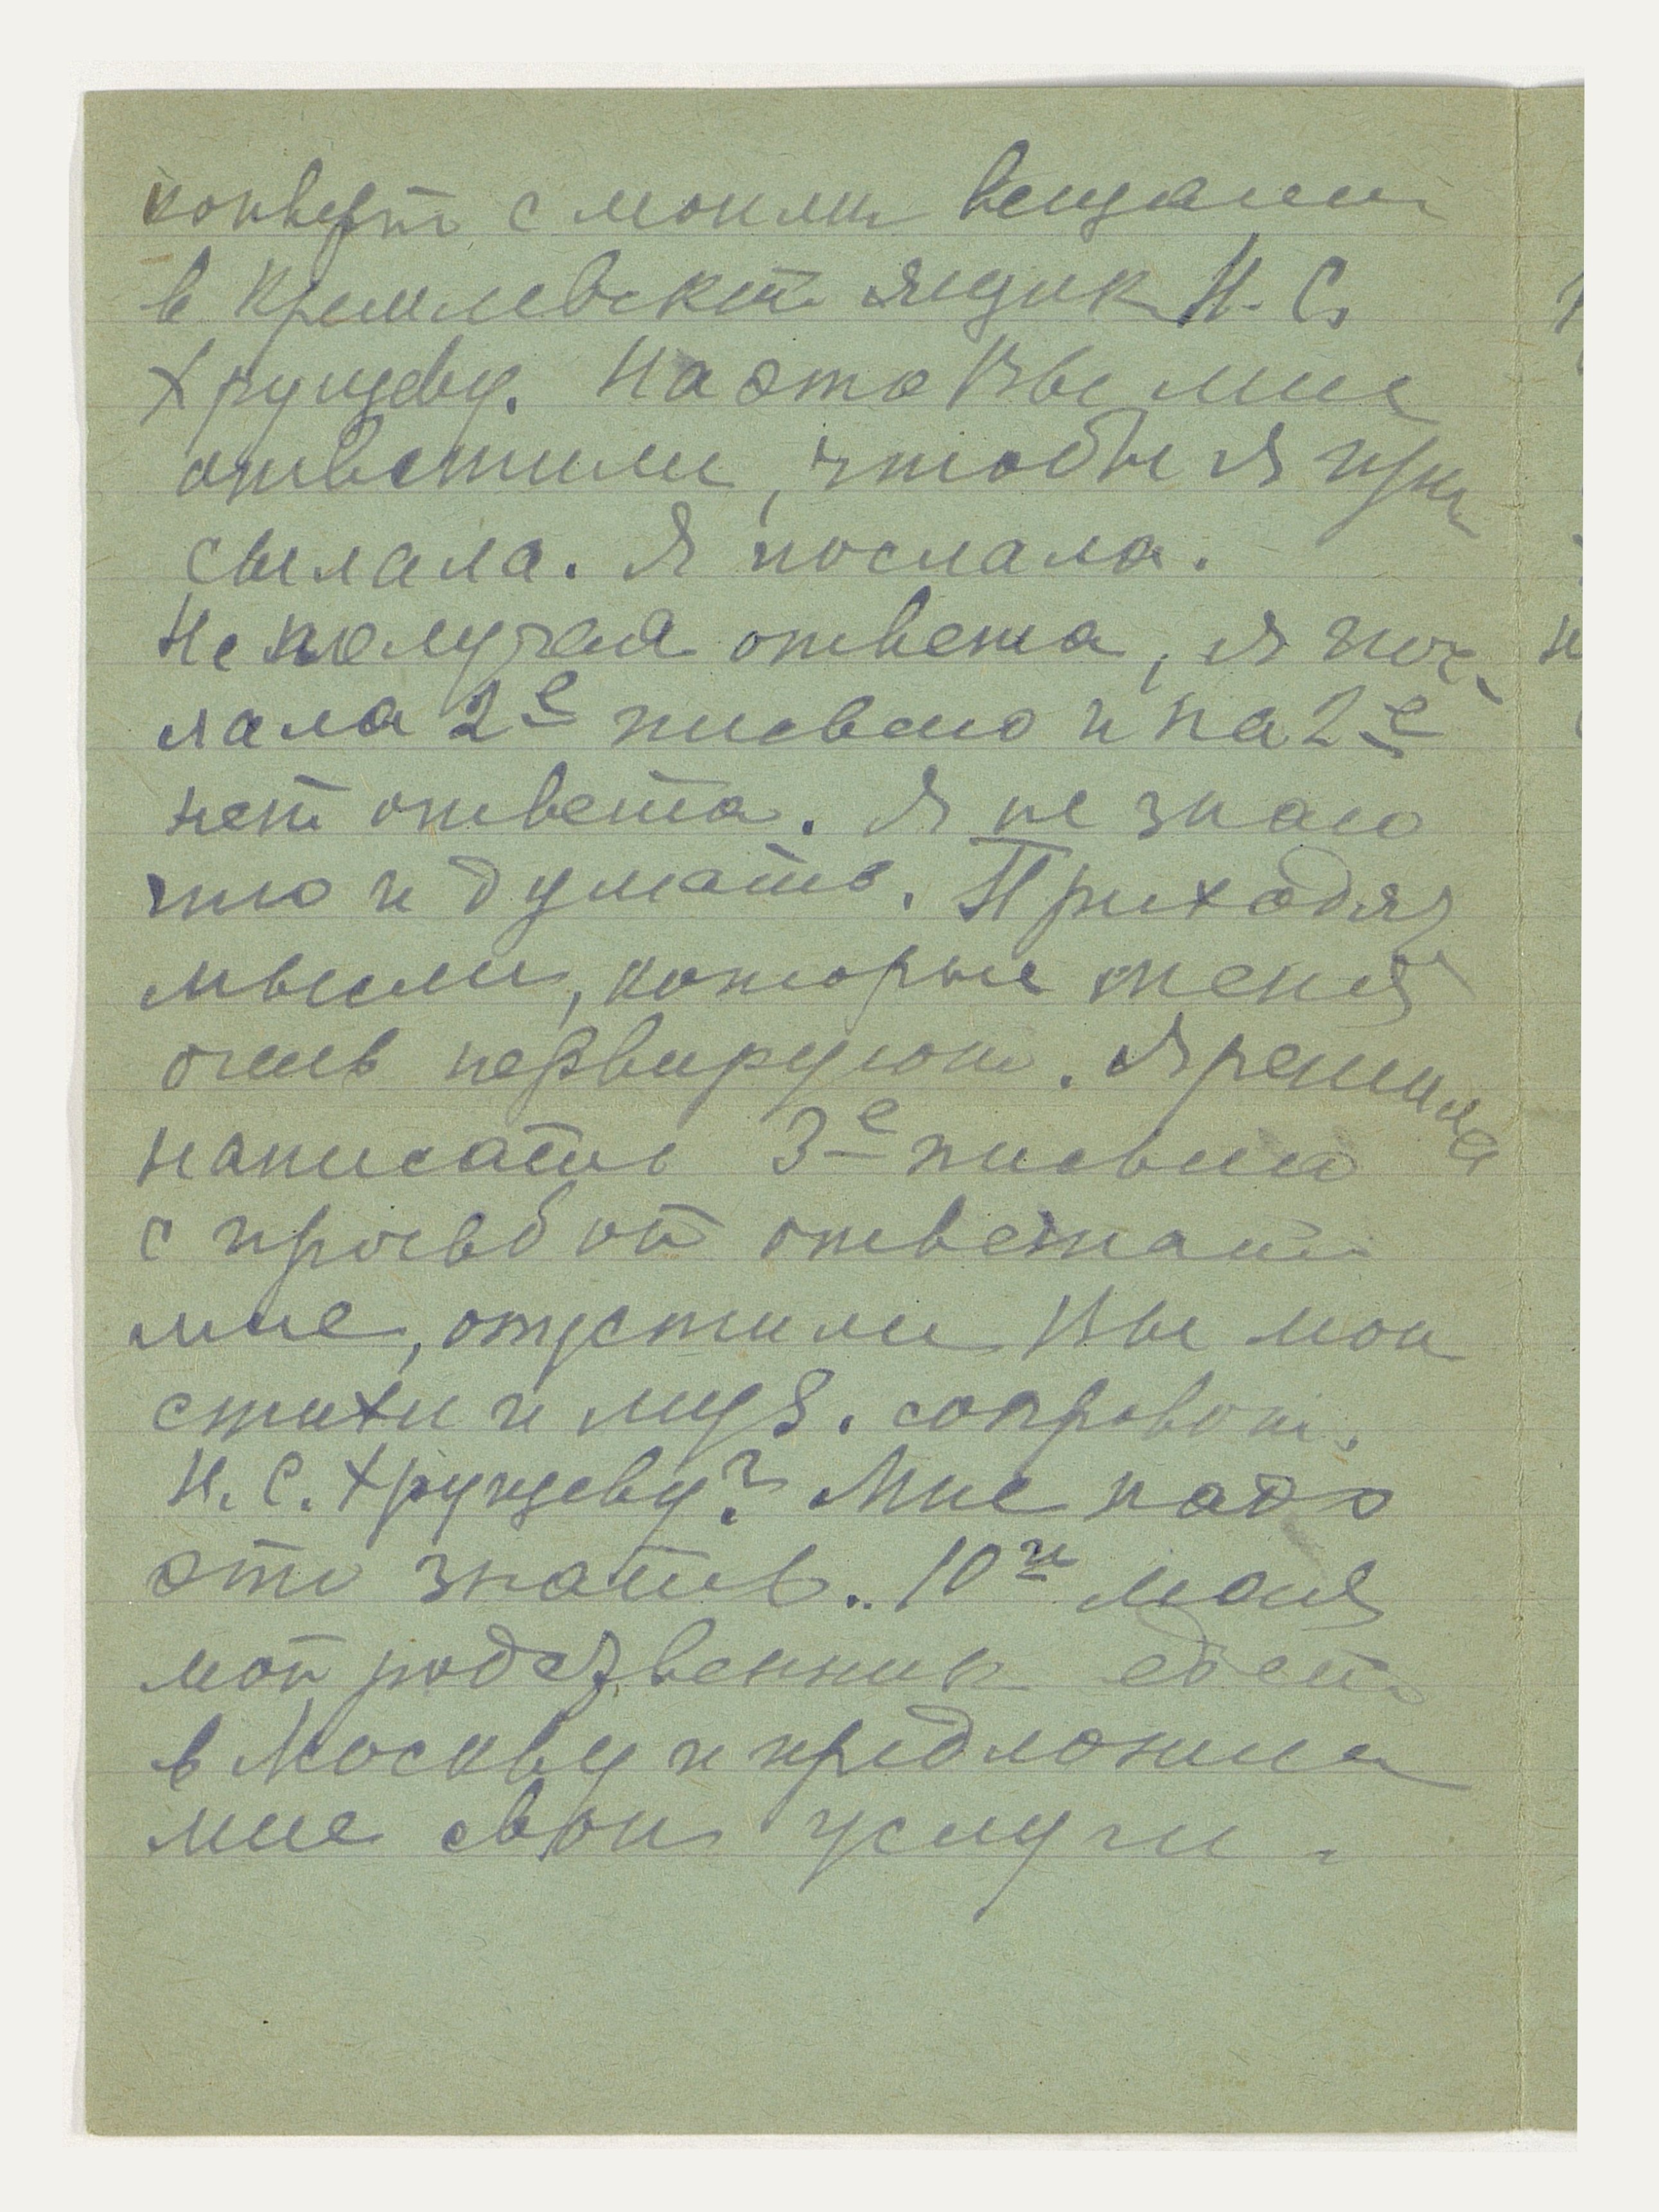 конверт с моими вещами
в Кремлевский ящик Н. С.
Хрущеву. На это Вы мне
ответили, чтобы я при
сылала. Я послала.
Не получая ответа, я пос-
лала 2е письмо и на 2е
нет ответа. Я не знаю
что и думать. Приходят
мысли, которые меня
очень нервируют. Я решила
написать 3е письмо
с просьбой ответить
мне, опустили Вы мои
стихи и муз. сопровож.
Н. С. Хрущеву? Мне надо
это знать. 10го мая
мой родственник едет
в Москву и предложил
мне свои услуги.